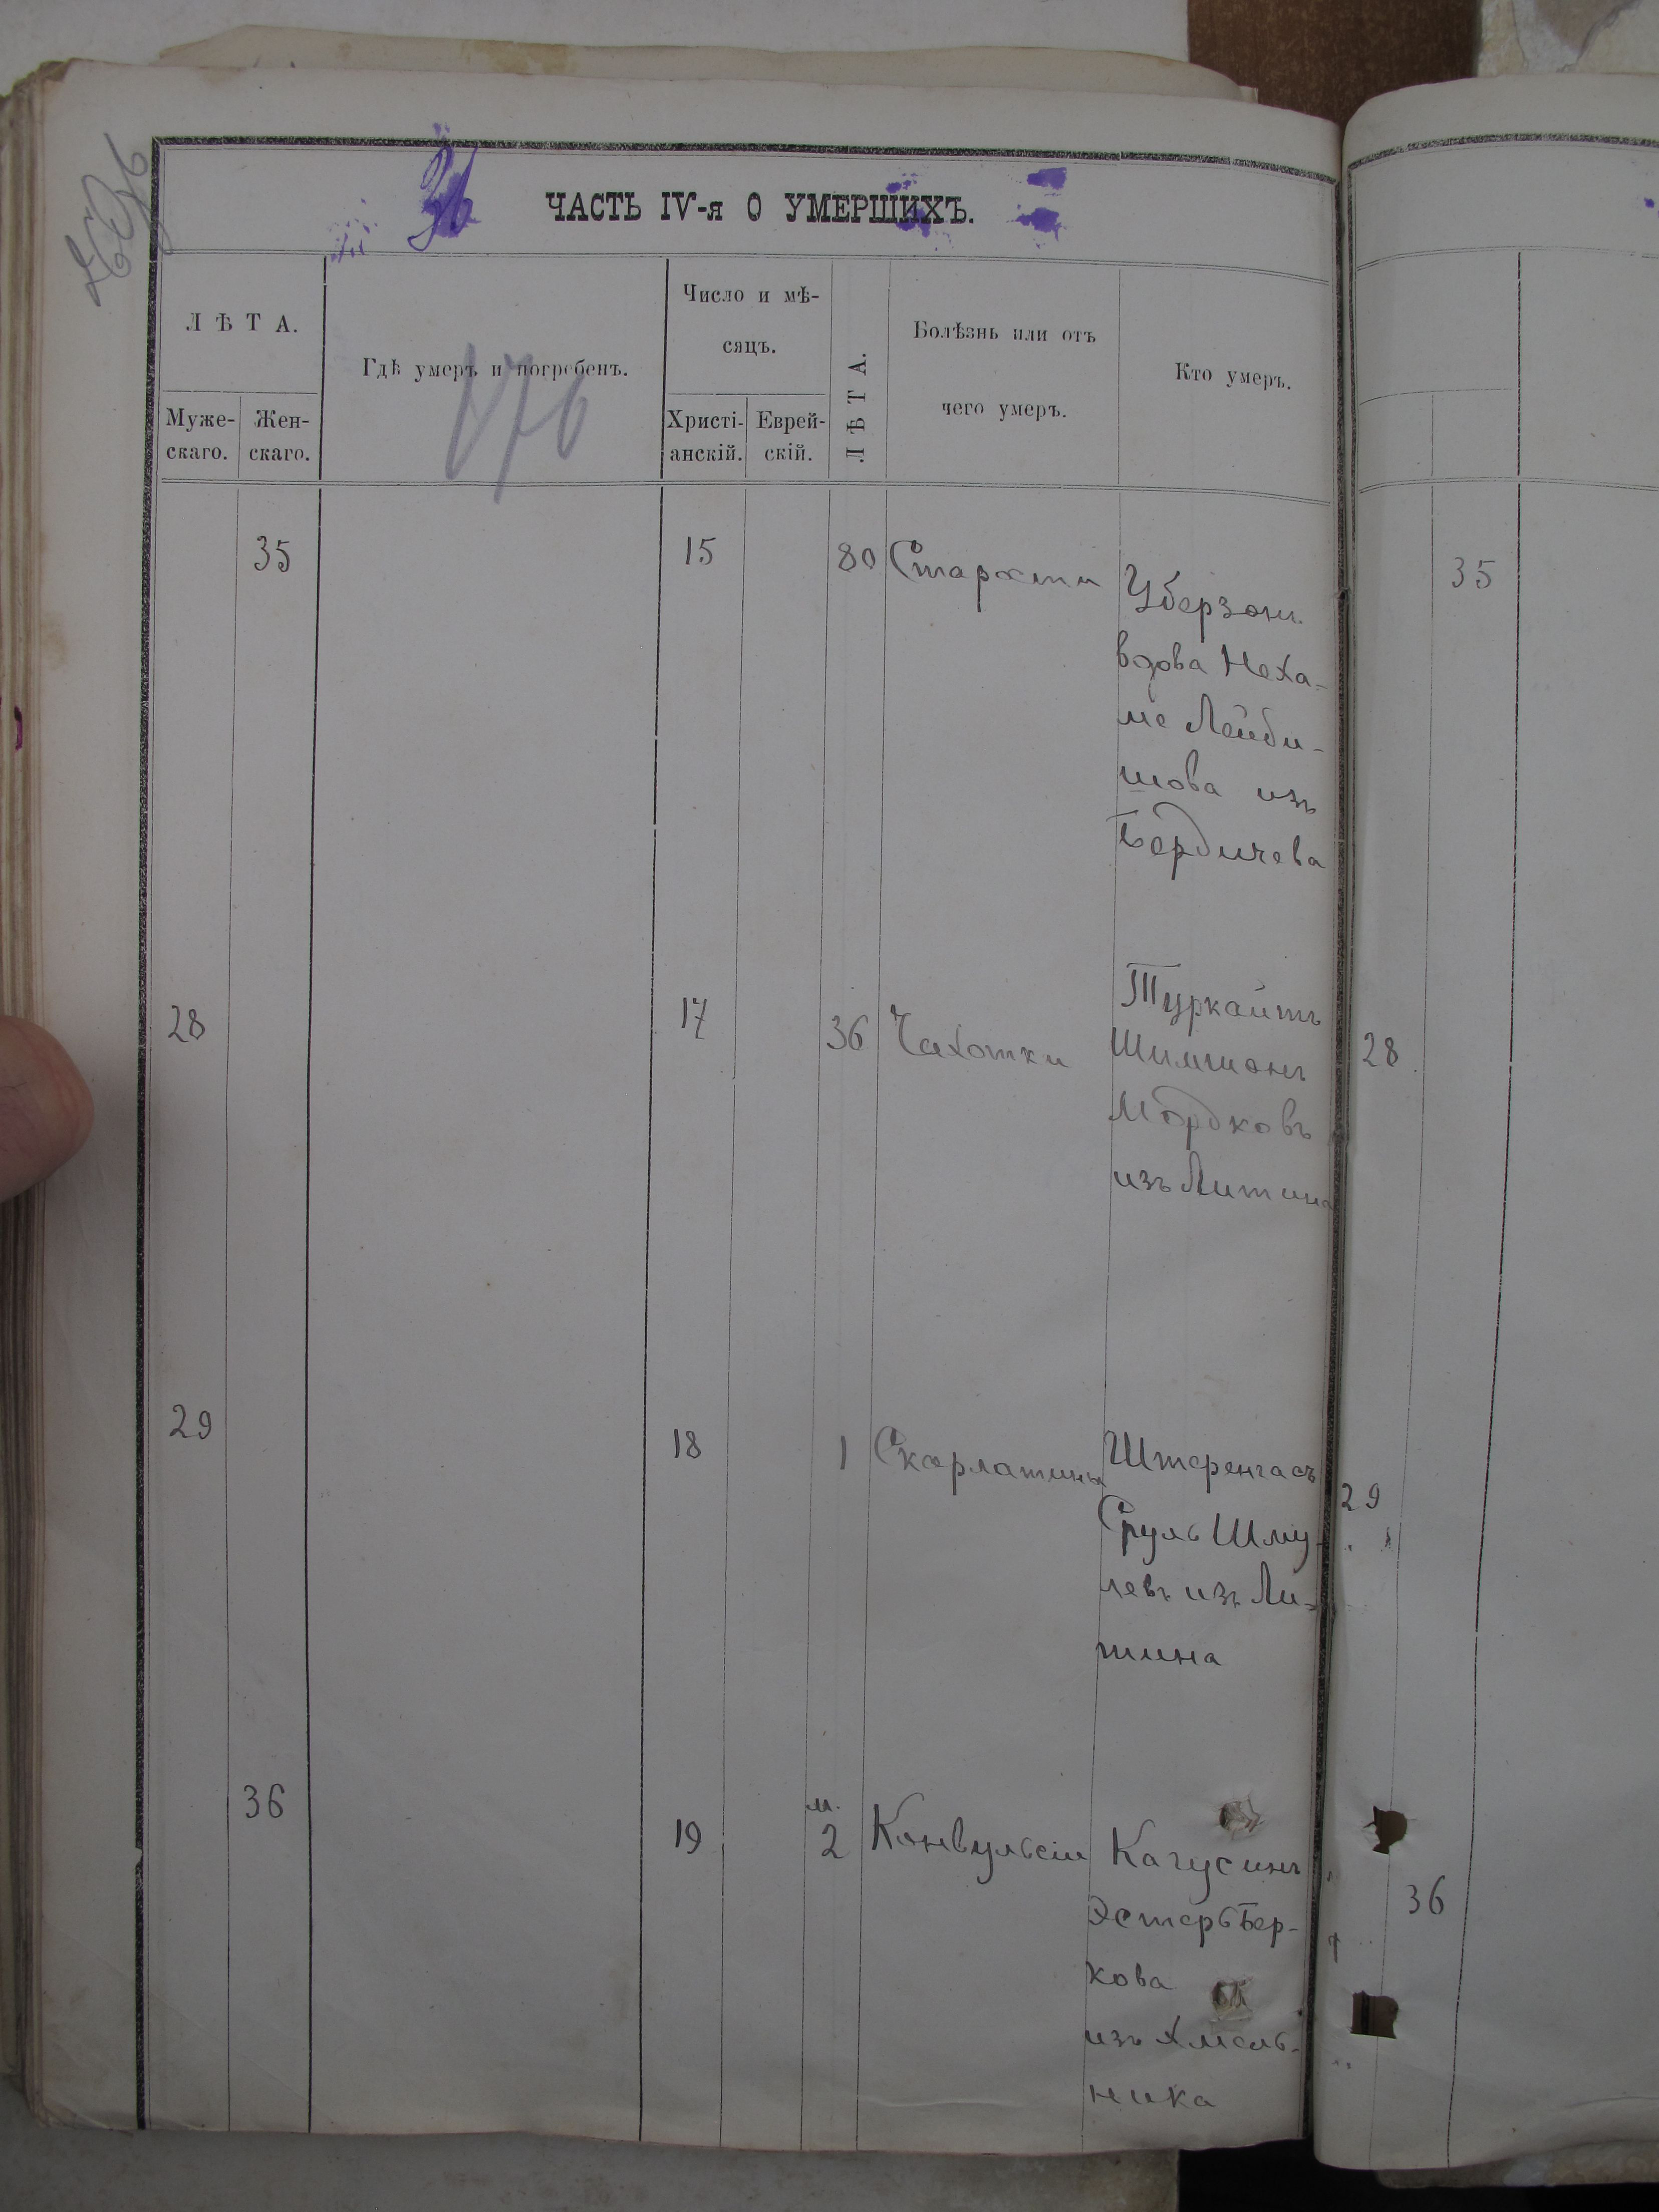 31
ЧАСТЬ IV-я О УМЕРШИХЪ.
ЛѢТА.
Муже-
скаго.
Жен-
скаго.
Гдѣ умеръ и погребенъ.
176
Число и мѣ-
сяцъ.
Христі-
анскій.
Еврей-
скій.
ЛѢТА.
Болѣзнь или отъ
чего умеръ.
Кто умеръ.
35 15 80 Старости
Уберзонъ
вдова Неха-
ме Лейби-
шова изъ
Бердичева
35
28 17 36 Чахотки
Туркайтъ
Шимшонъ
Мордковъ
изъ Литина
28
29 18 1 Скарлатины
Штеренгасъ
Сруль Шму-
левъ изъ Ли-
тина
29
36 19 м. 2 Конвульсіи
Кагусинъ
Эстеръ Бер-
кова
изъ Хмель-
ника
36